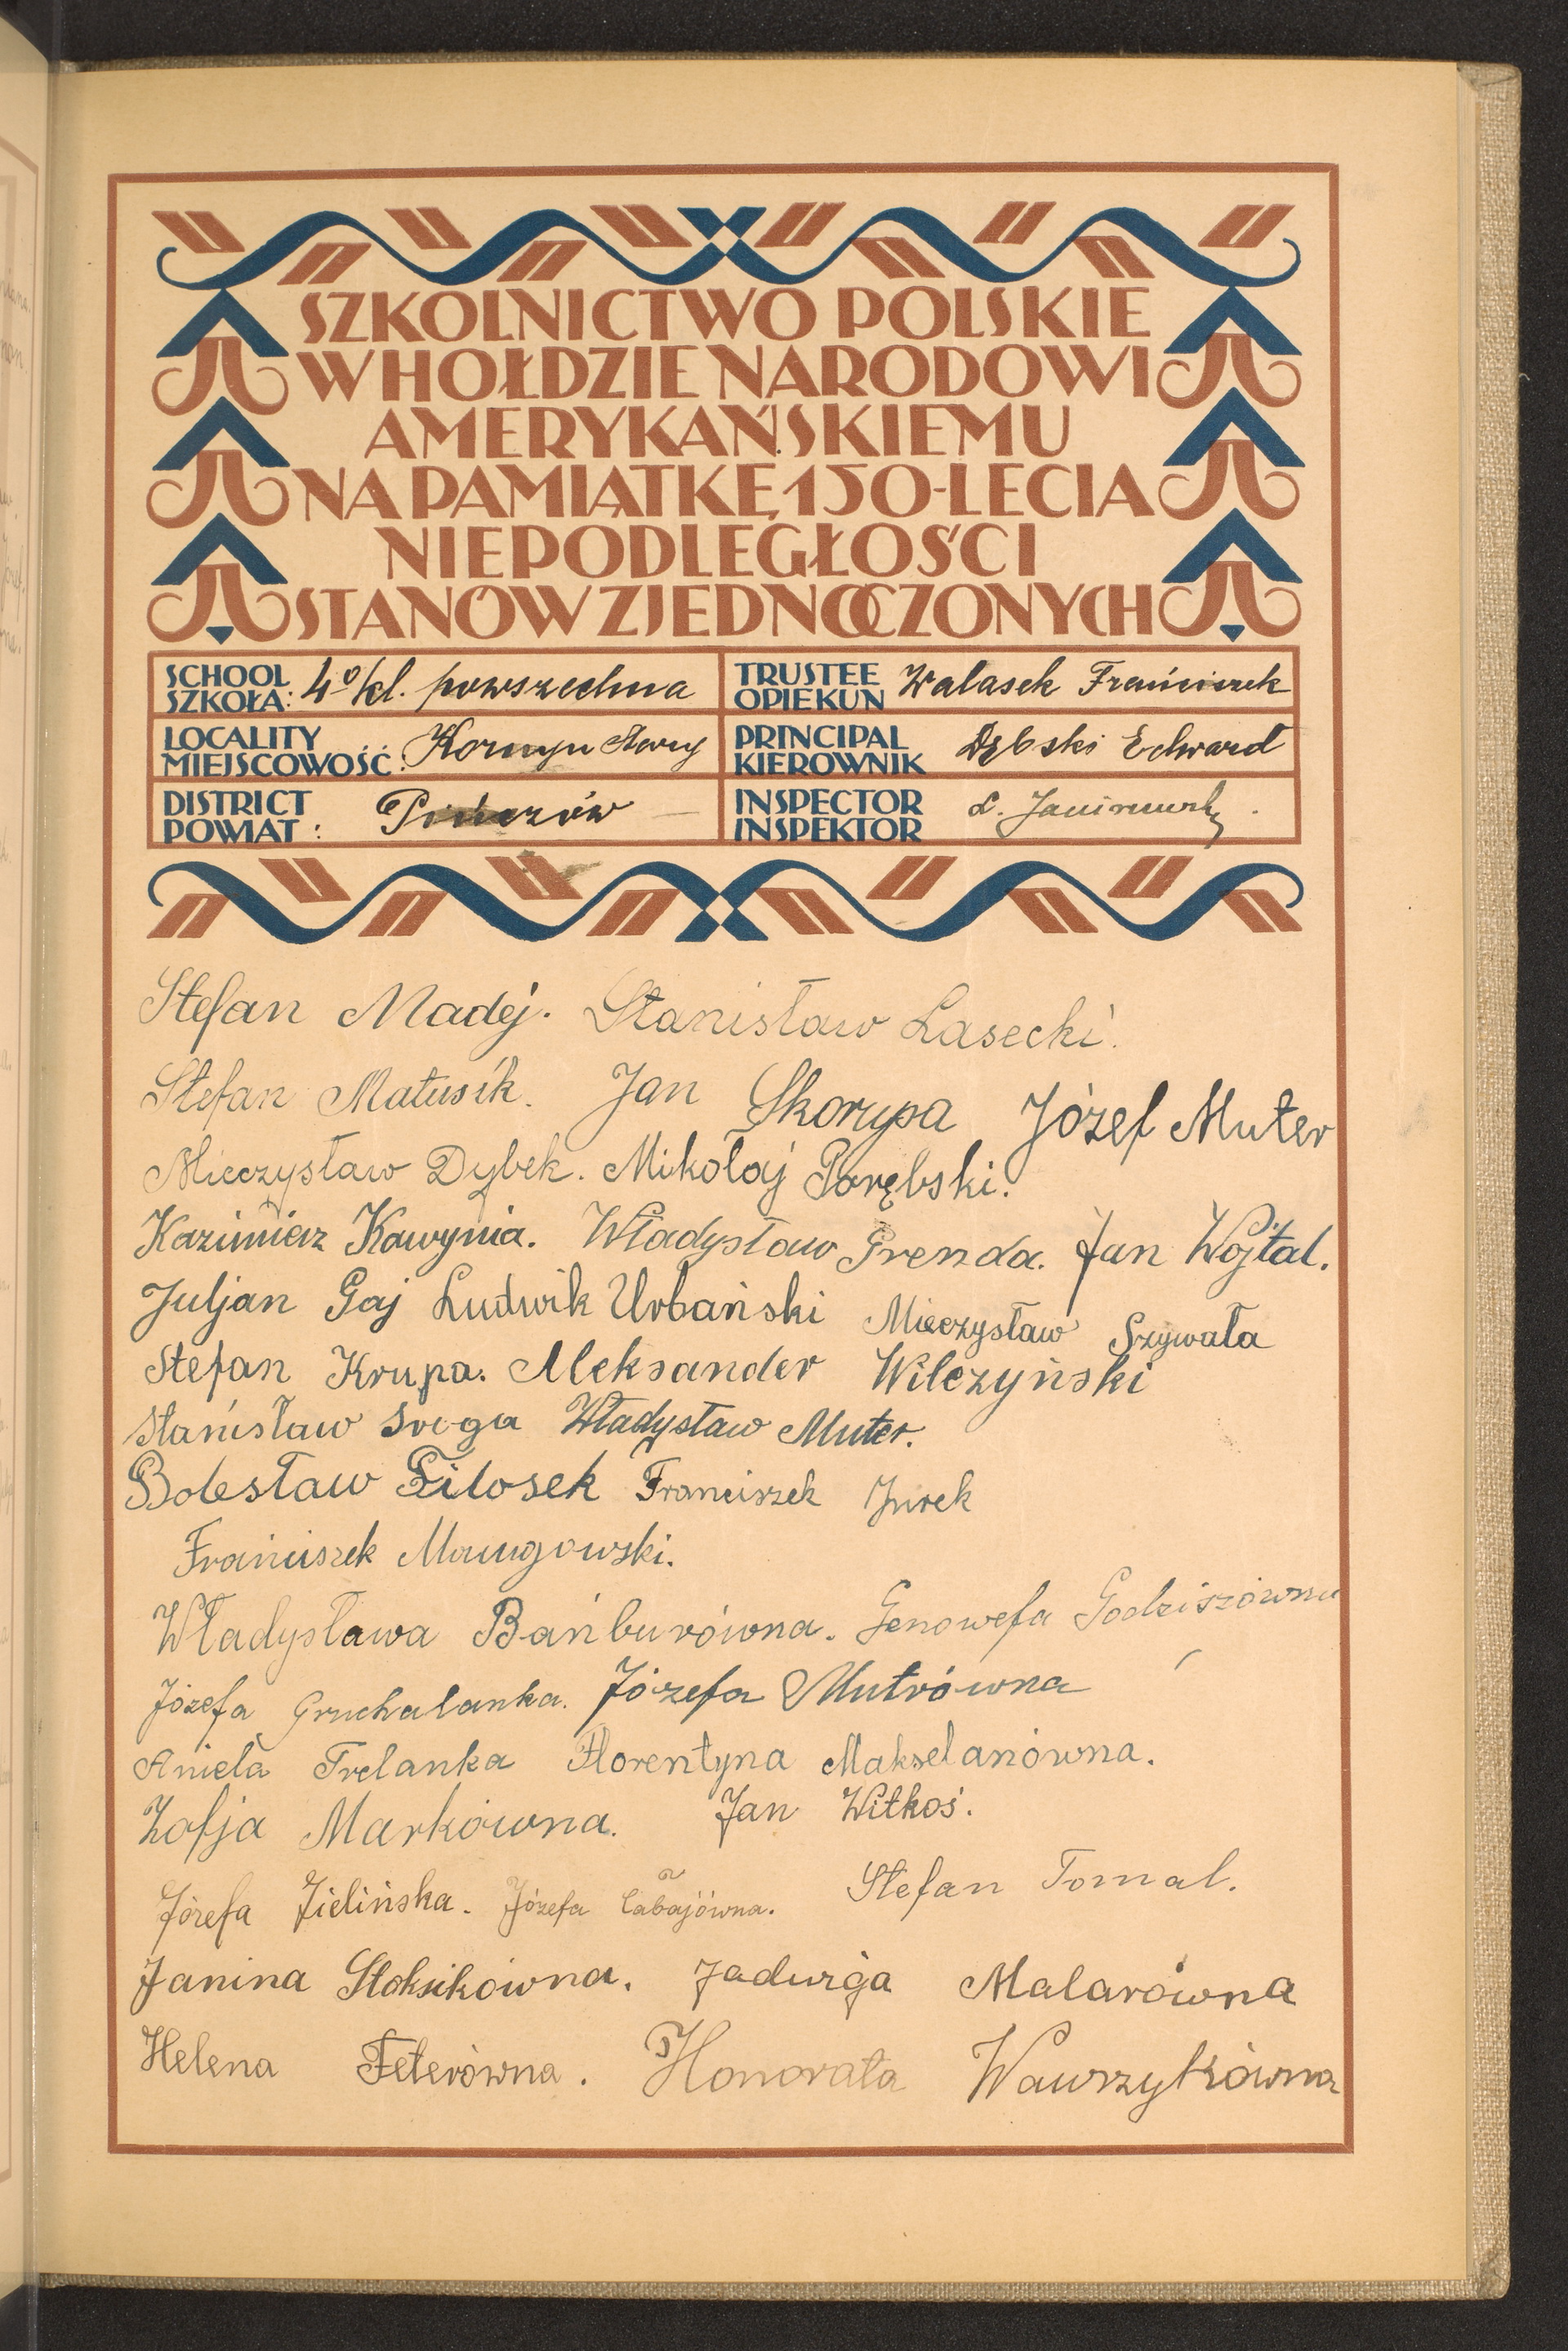 SZKOLNICTWO POLSKIE
W HOŁDZIE NARODOWI
AMERYKAŃSKIEMU
NA PAMIĄTKĘ 150-LECIA
NIEPODLEGŁOŚCI
STANÓW ZJEDNOCZONYCH
SCHOOL
SZKOŁA: 4º/kl. powszechna
TRUSTEE
OPIEKUN Walasek Franciszek
LOCALITY
MIEJSCOWOŚĆ: Korczyn Stary
PRINCIPAL
KIEROWNIK Dębski Edward
DISTRICT
POWIAT: Pińczów
INSPECTOR
INSPEKTOR
Stefan Madej. Stanisław Lasecki.
Stefan Matusik. Jan Skorupa Józef Muter
Mieczysław Dybek. Mikołaj Porębski.
Kazimierz Kawynia. Władysław Grenda. Jan Wojtal.
Juljan Gaj Ludwik Urbański Mieczysław Szywała
Stefan Krupa. Aleksander Wilczyński
Stanisław Sroga Władysław Muter.
Bolesław Filosek Franciszek Jurek
Franciszek
Władysława Bańburówna. Genowefa Godziszówna
Józefa Gruchalanka. Józefa Mutrówna
Aniela Trelanka Florentyna Makselanówna.
Zofja Markówna. Jan Witkoś.
Józefa Zielińska. Józefa Cabajówna. Stefan Tomal.
Janina Stoksikówna. Jadwiga Malarówna
Helena Feterówna. Honorata Wawrzykówna